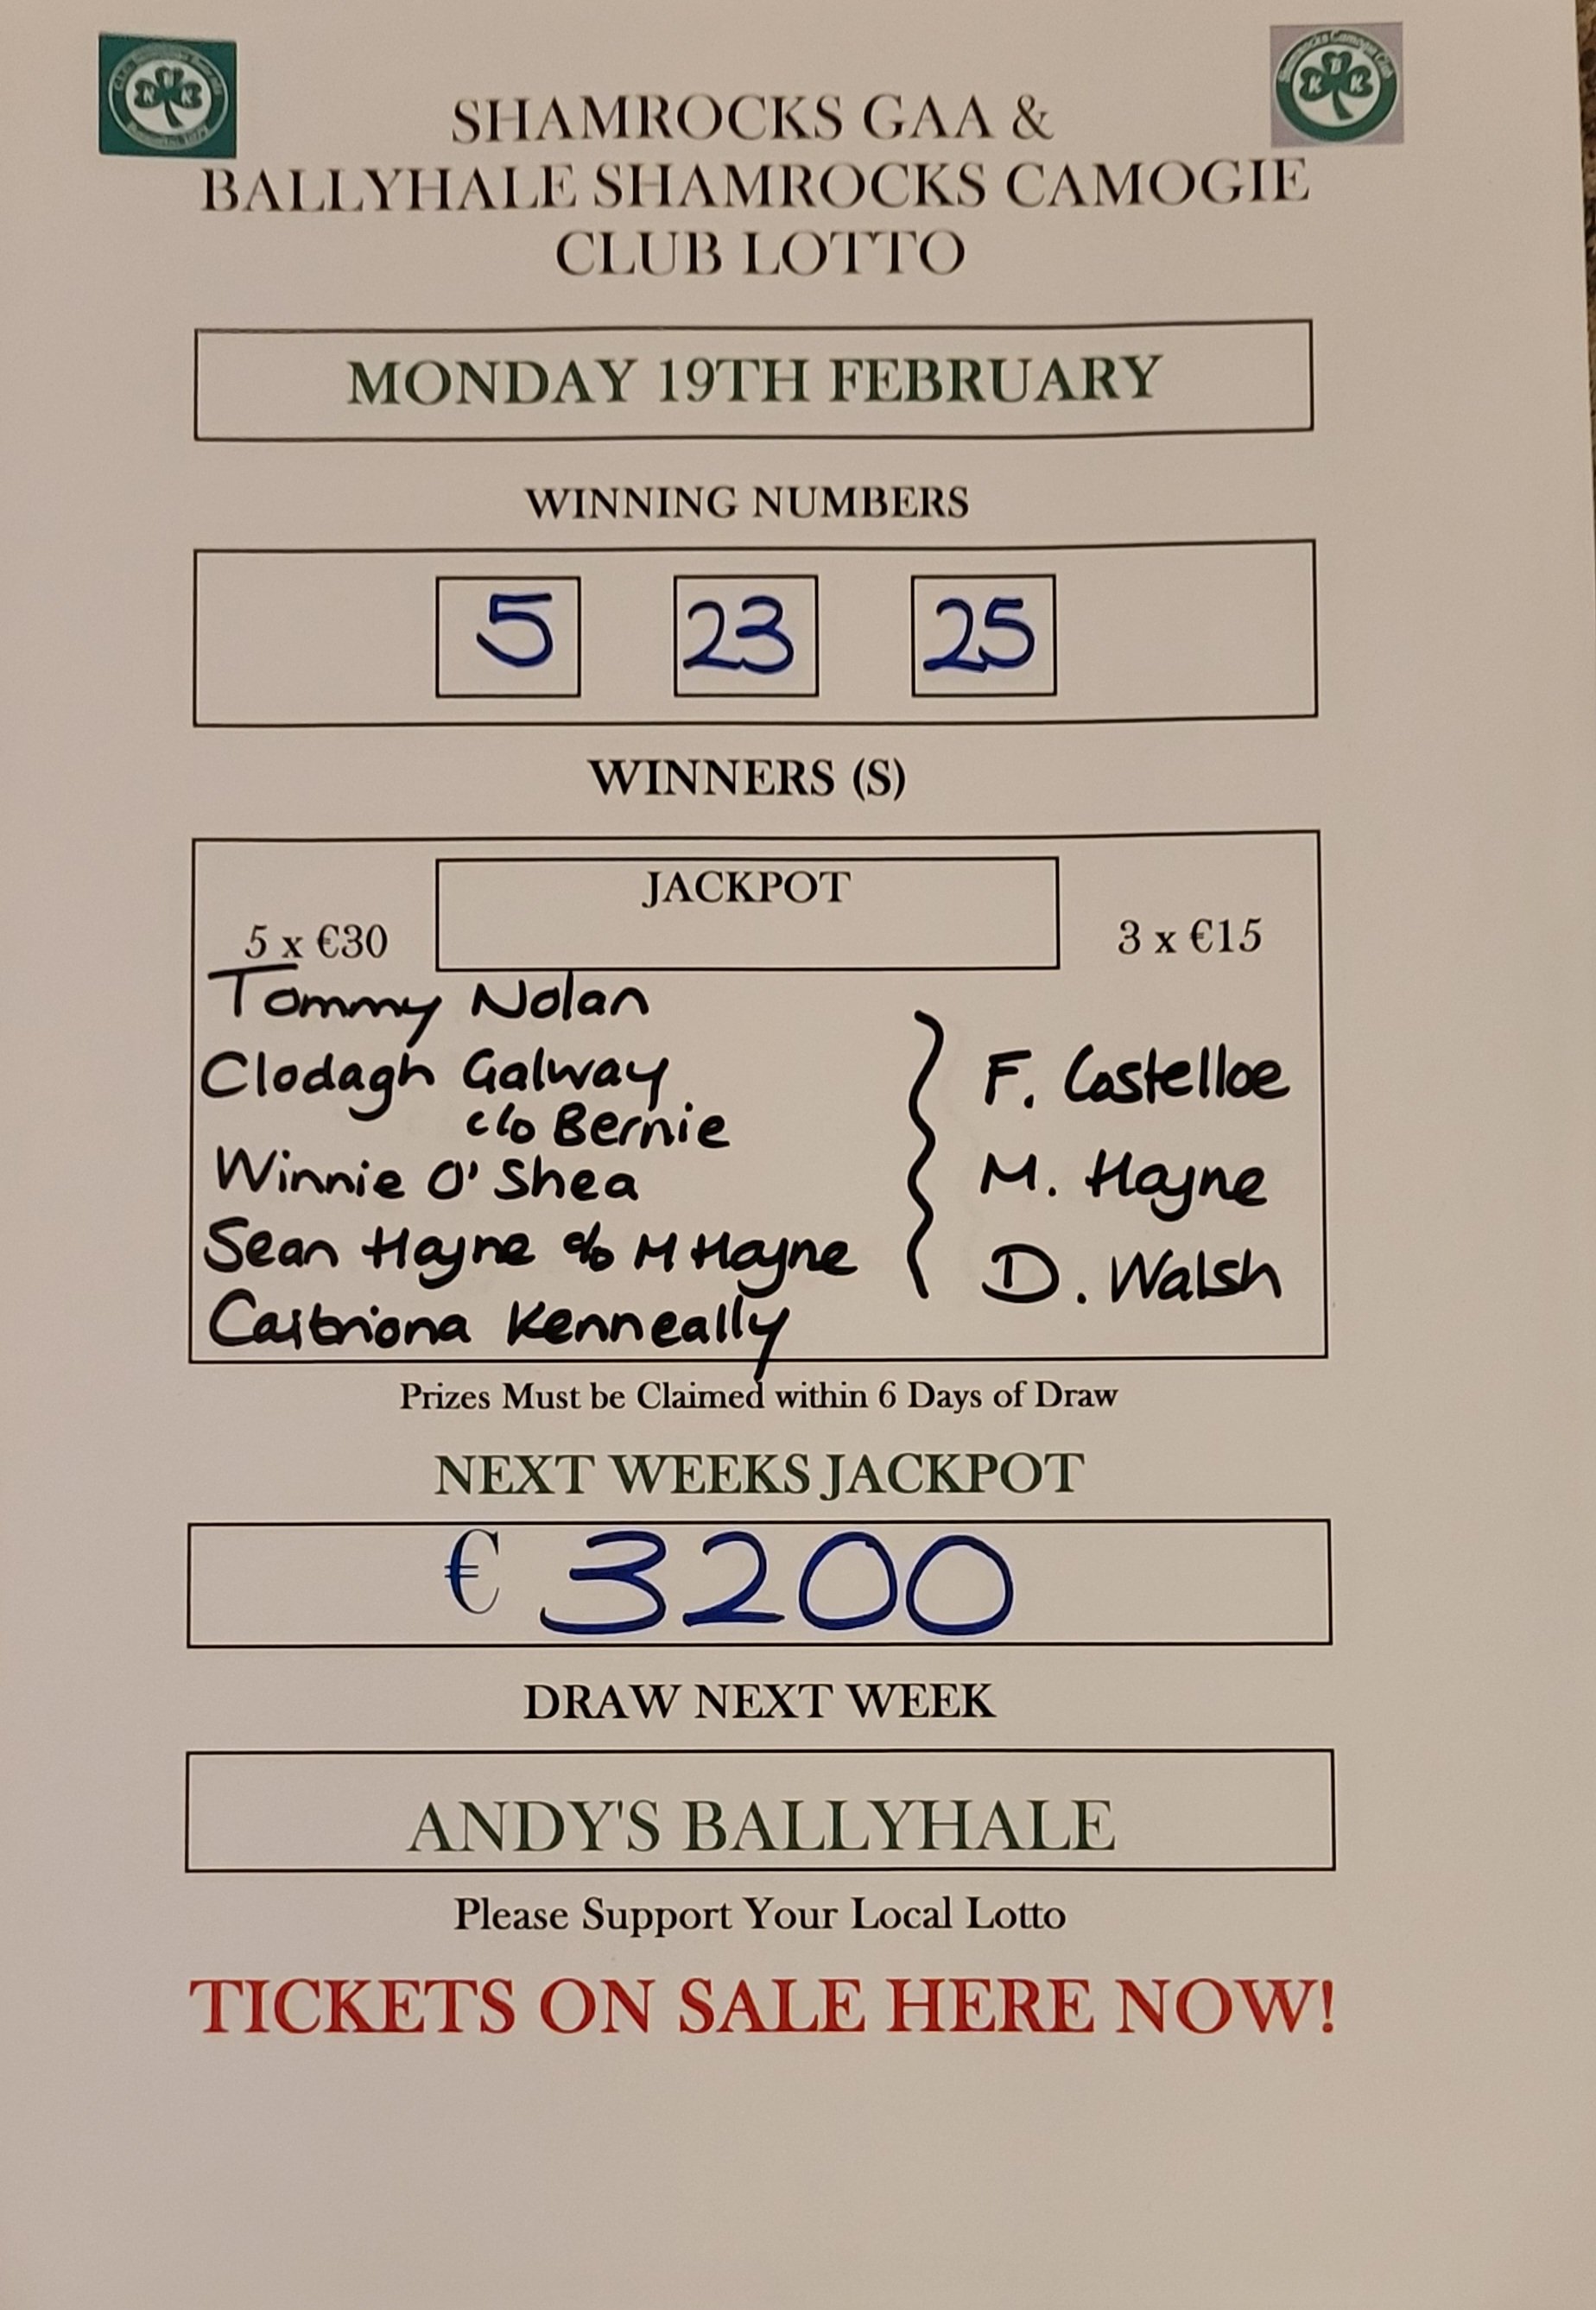 SHAMROCKS GAA &
BALLYHALE SHAMROCKS CAMOGIE
CLUB LOTTO
MONDAY 19TH FEBRUARY
WINNING NUMBERS
5 23 25
WINNERS (S)
JACKPOT
5 x €30
3 x €15
Tommy Nolan
Clodagh Galway
c/o Bernie
Winnie O' Shea
Sean Hayne c/o M Hayne
Caitriona Kenneally
F. Costelloe
M. Hayne
D. Walsh
Prizes Must be Claimed within 6 Days of Draw
NEXT WEEKS JACKPOT
€ 3200
DRAW NEXT WEEK
ANDY'S BALLYHALE
Please Support Your Local Lotto
TICKETS ON SALE HERE NOW!